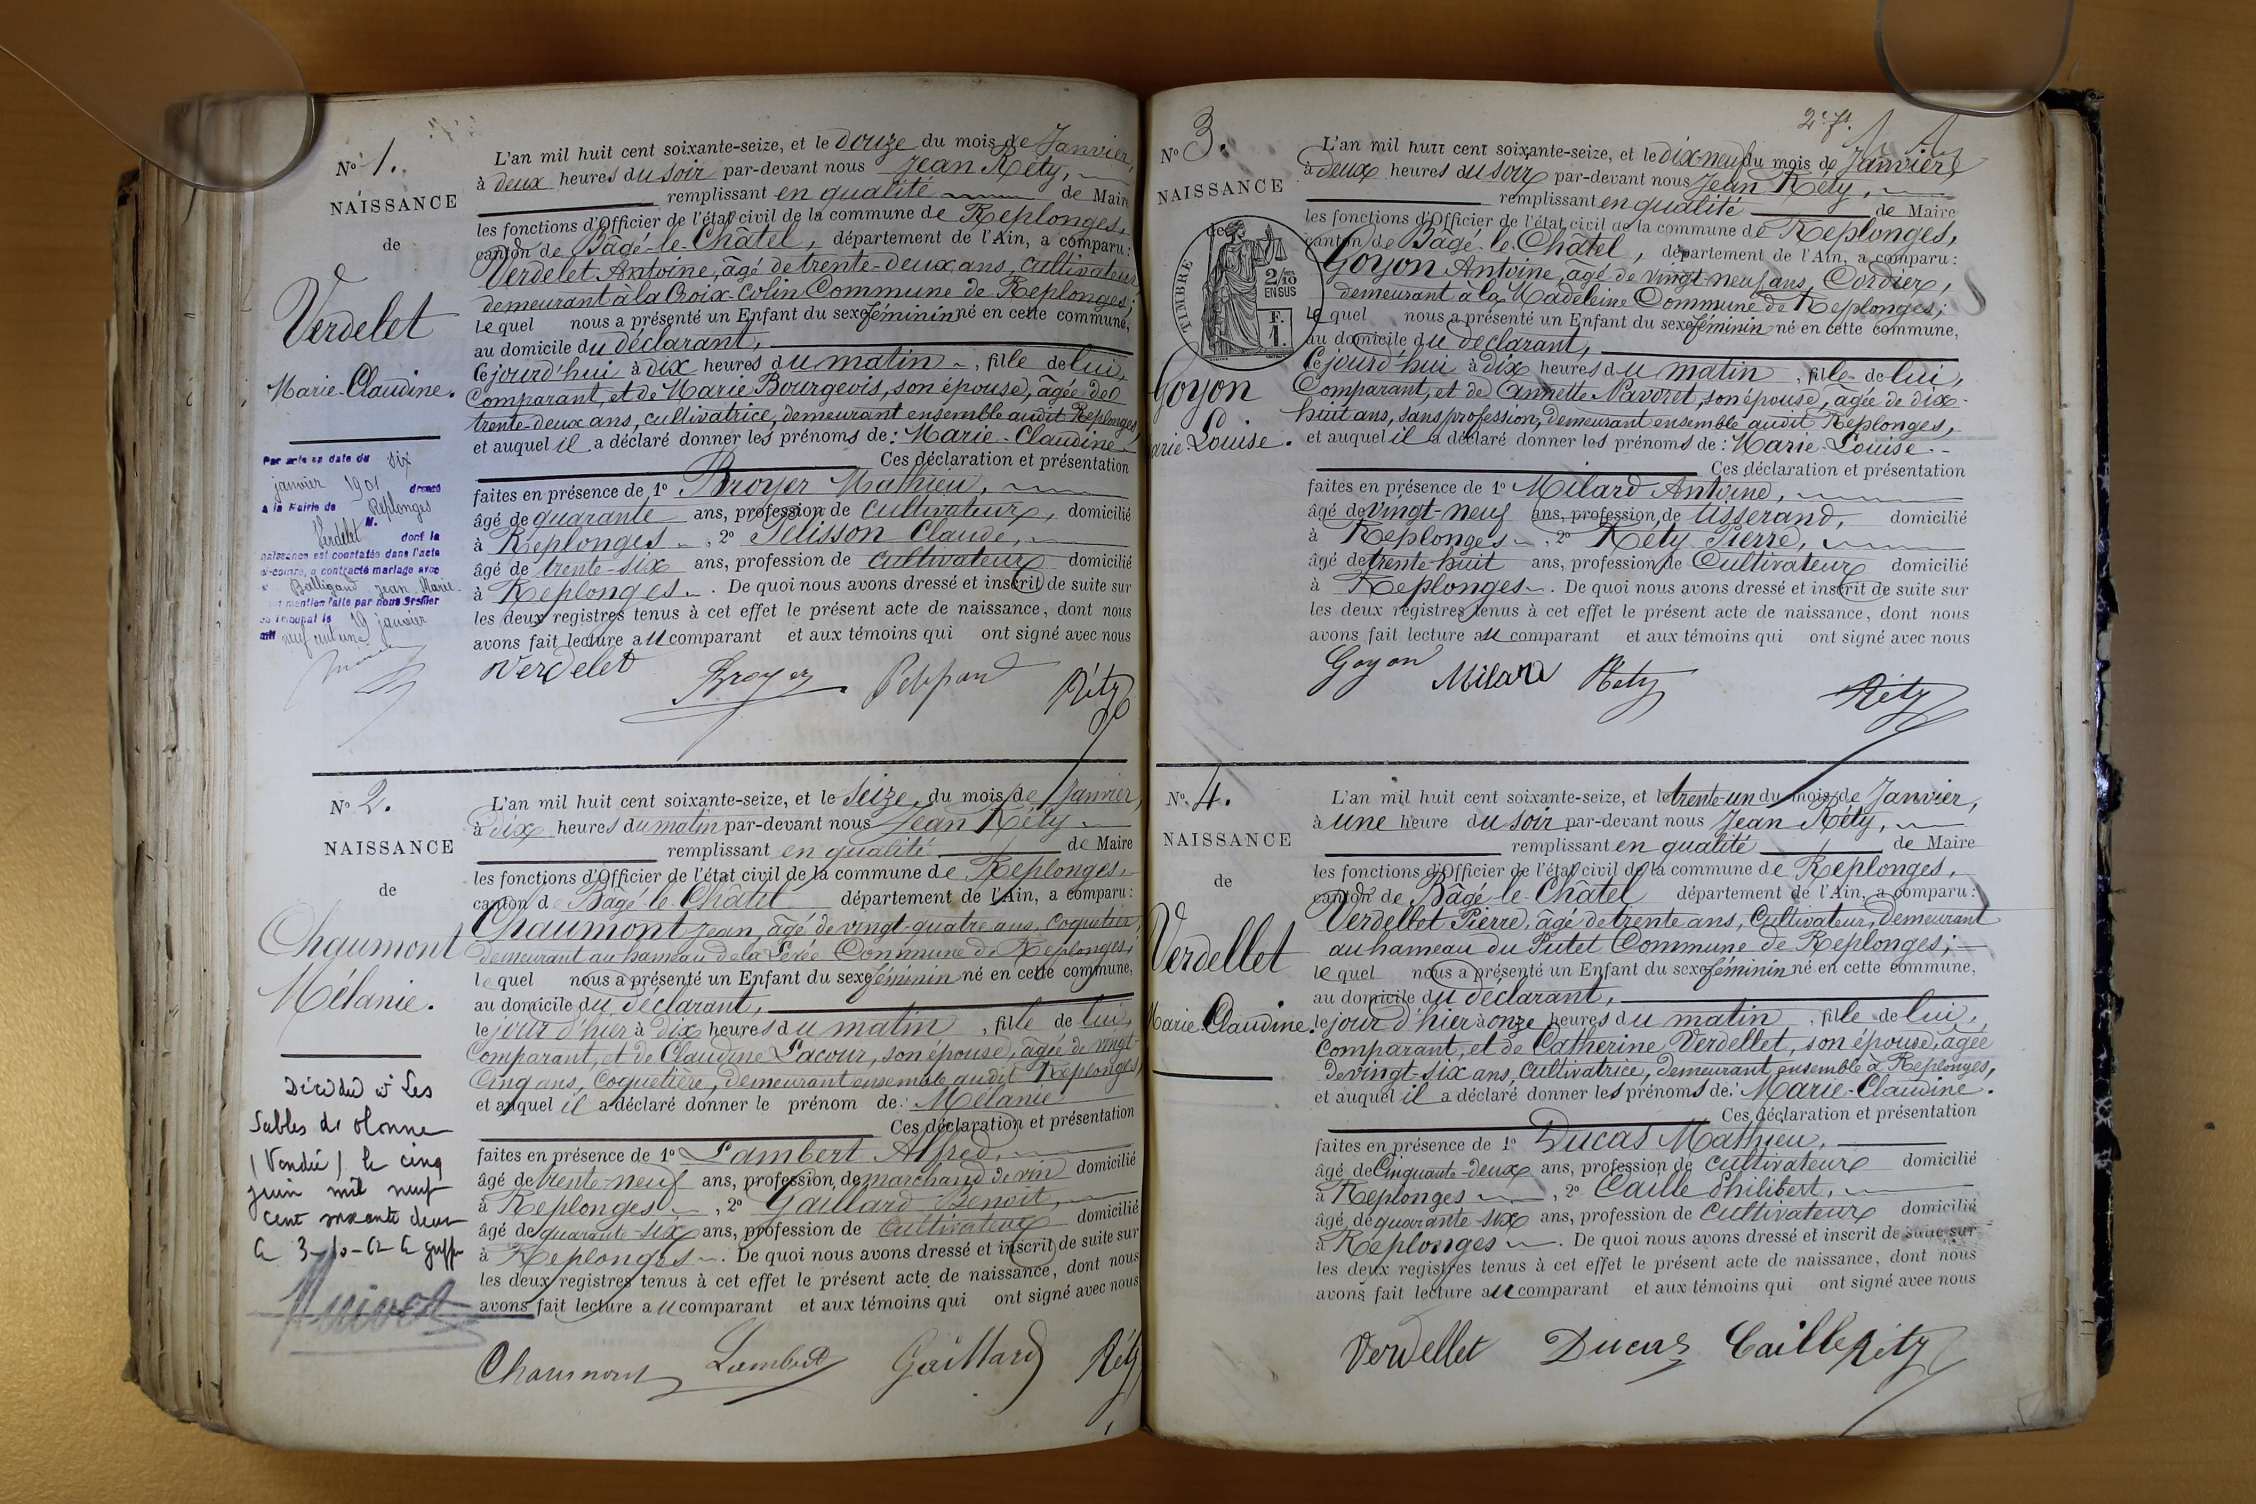 N° 1.
NAISSANCE
de
Verdelet
Marie-Claudine.
Par acte en date du six
janvier 1901 dressé
à la Mairie de Replonges
M.
Verdelet dont la
naissance est constatée dans l'acte
ci-contre, a contracté mariage avec
Balligand Jean Marie
mention faite par nous Greffier
du Tribunal le 19 janvier
mil neuf cent un
L'an mil huit cent soixante-seize, et le douze du mois de Janvier,
à deux heures du soir par-devant nous Jean Réty,
remplissant en qualité de Maire
les fonctions d'Officier de l'état civil de la commune de Replonges,
canton de Bâgé-le-Châtel, département de l'Ain, a comparu:
Verdelet Antoine, âgé de trente-deux ans, cultivateur,
demeurant à la Croix-Colin Commune de Replonges;
lequel nous a présenté un Enfant du sexe féminin né en cette commune,
au domicile du déclarant,
cejourd'hui à dix heures du matin, fille de lui,
Comparant, et de Marie Bourgeois, son épouse, âgée de
trente-deux ans, cultivatrice, demeurant ensemble audit Replonges,
et auquel il a déclaré donner les prénoms de: Marie-Claudine
Ces déclaration et présentation
faites en présence de 1° Broyer Mathieu,
âgé de quarante ans, profession de cultivateur, domicilié
à Replonges, 2° Pelisson Claude,
âgé de trente-six ans, profession de cultivateur domicilié
à Replonges. De quoi nous avons dressé et inscrit de suite sur
les deux registres tenus à cet effet le présent acte de naissance, dont nous
avons fait lecture au comparant et aux témoins qui ont signé avec nous
Verdelet Broyer Pelisson Réty
N° 2.
NAISSANCE
de
Chaumont
Mélanie.
Décédée à Les
Sables d'olonne
(Vendée) le cinq
juin mil neuf
cent soixante deux
le 3-10-62 le greffier
L'an mil huit cent soixante-seize, et le seize du mois de Janvier,
à dix heures du matin par-devant nous Jean Réty
remplissant en qualité de Maire
les fonctions d'Officier de l'état civil de la commune de Replonges,
canton de Bâgé-le-Châtel département de l'Ain, a comparu:
Chaumont Jean, âgé de vingt-quatre ans, Coquetier,
demeurant au hameau de la Levée Commune de Replonges;
lequel nous a présenté un Enfant du sexe féminin né en cette commune,
au domicile du déclarant,
le jour d'hier à dix heures du matin, fille de lui,
Comparant, et de Claudine Lacour, son épouse, âgée de vingt-
cinq ans, Coquetière, demeurant ensemble audit Replonges,
et auquel il a déclaré donner le prénom de: Mélanie
Ces déclaration et présentation
faites en présence de 1° Lambert Alfred,
âgé de trente-neuf ans, profession de marchand de vin domicilié
à Replonges, 2° Gaillard Benoit,
âgé de quarante-six ans, profession de cultivateur domicilié
à Replonges. De quoi nous avons dressé et inscrit de suite sur
les deux registres tenus à cet effet le présent acte de naissance, dont nous
avons fait lecture au comparant et aux témoins qui ont signé avec nous
Chaumont Lambert Gaillard Réty
2e f.
N° 3.
NAISSANCE
TIMBRE
2/10
EN SUS
F.
1.
Goyon
arie-Louise.
L'an mil huit cent soixante-seize, et le dix-neuf du mois de Janvier,
à deux heures du soir par-devant nous Jean Réty,
remplissant en qualité de Maire
les fonctions d'Officier de l'état civil de la commune de Replonges,
canton de Bâgé-le-Châtel, département de l'Ain, a comparu:
Goyon Antoine, âgé de vingt-neuf ans, Cordier,
demeurant à la Madeleine Commune de Replonges;
lequel nous a présenté un Enfant du sexe féminin né en cette commune,
au domicile du déclarant,
cejourd'hui à dix heures du matin, fille de lui,
Comparant, et de Annette Navoret, son épouse, âgée de dix-
huit ans, sans profession, demeurant ensemble audit Replonges,
et auquel il a déclaré donner les prénoms de: Marie-Louise.
Ces déclaration et présentation
faites en présence de 1° Milard Antoine,
âgé de vingt-neuf ans, profession de tisserand, domicilié
à Replonges, 2° Réty Pierre,
âgé de trente-huit ans, profession de Cultivateur domicilié
à Replonges. De quoi nous avons dressé et inscrit de suite sur
les deux registres tenus à cet effet le présent acte de naissance, dont nous
avons fait lecture au comparant et aux témoins qui ont signé avec nous
Goyon Milard Réty Réty
N° 4.
NAISSANCE
de
Verdellet
Marie-Claudine.
L'an mil huit cent soixante-seize, et le trente-un du mois de Janvier,
à une heure du soir par-devant nous Jean Réty,
remplissant en qualité de Maire
les fonctions d'Officier de l'état civil de la commune de Replonges,
canton de Bâgé-le-Châtel département de l'Ain, a comparu:
Verdellet Pierre, âgé de trente ans, Cultivateur, demeurant
au hameau du Putet Commune de Replonges;
lequel nous a présenté un Enfant du sexe féminin né en cette commune,
au domicile du déclarant,
le jour d'hier à onze heures du matin, fille de lui,
Comparant, et de Catherine Verdellet, son épouse, âgée
de vingt-six ans, cultivatrice, demeurant ensemble à Replonges,
et auquel il a déclaré donner les prénoms de: Marie-Claudine.
Ces déclaration et présentation
faites en présence de 1° Ducas Mathieu,
âgé de Cinquante-deux ans, profession de cultivateur domicilié
à Replonges, 2° Caille Philibert,
âgé de quarante-six ans, profession de cultivateur domicilié
à Replonges. De quoi nous avons dressé et inscrit de suite sur
les deux registres tenus à cet effet le présent acte de naissance, dont nous
avons fait lecture au comparant et aux témoins qui ont signé avec nous
Verdellet Ducas Caille Réty